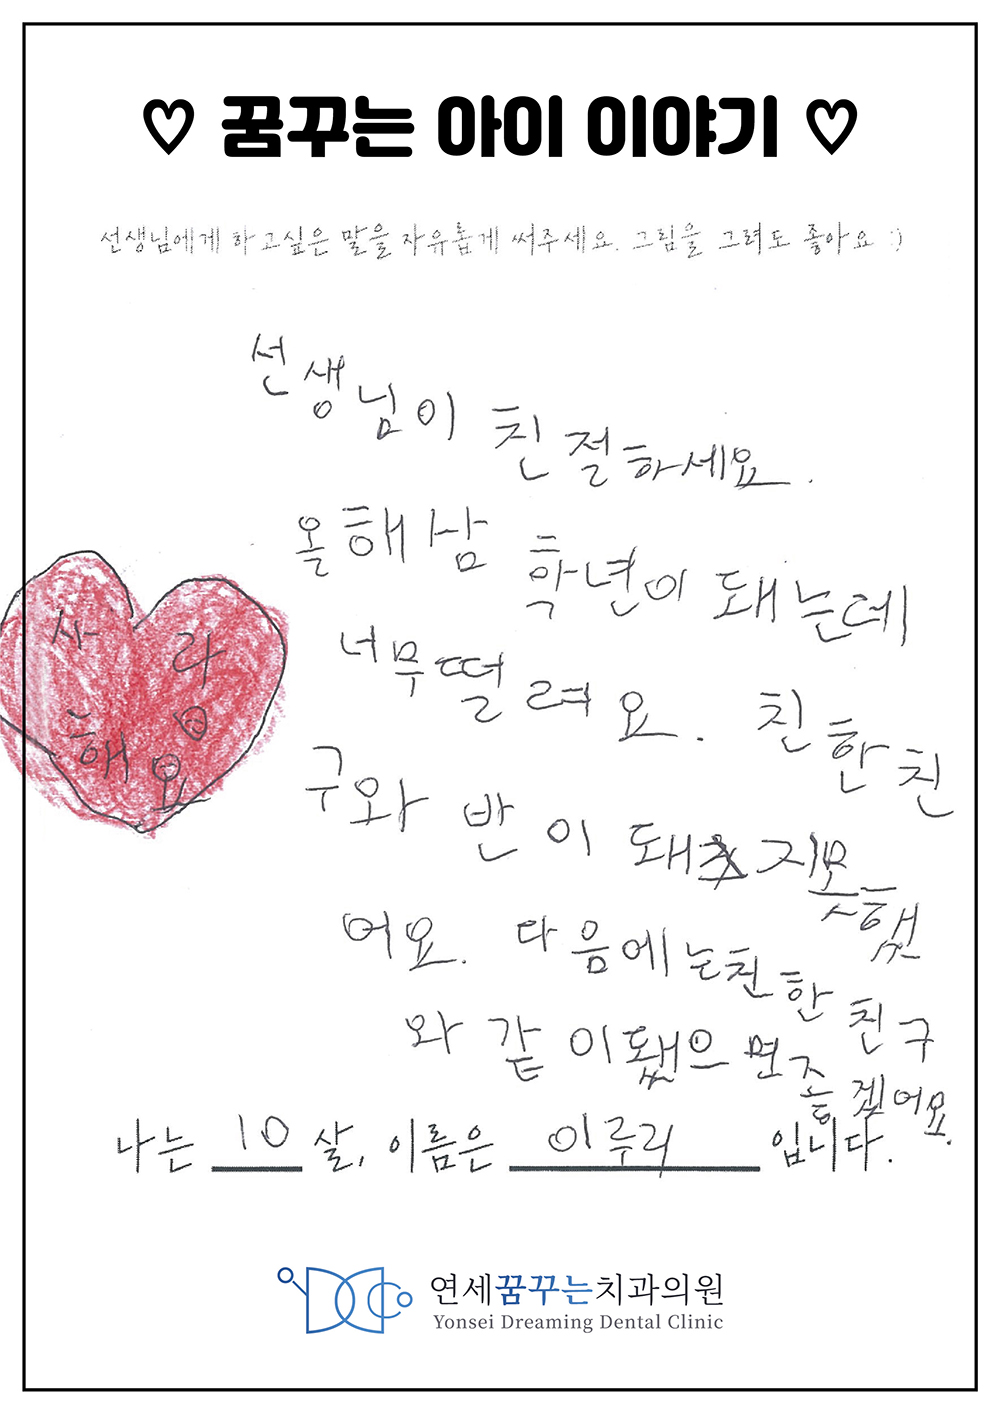 ♡ 꿈꾸는 아이 이야기 ♡
선생님에게 하고싶은 말을 자유롭게 써주세요. 그림을 그려도 좋아요 :)
선생님이 친절하세요.
올해 삼 학년이 돼는데
너무 떨려요. 친한 친
구와 반이 돼지 못했
어요. 다음에는 친한 친구
와 같이 됐으면 좋겠어요.
사랑
해요
나는 10 살, 이름은 이루리 입니다.
연세꿈꾸는치과의원
Yonsei Dreaming Dental Clinic